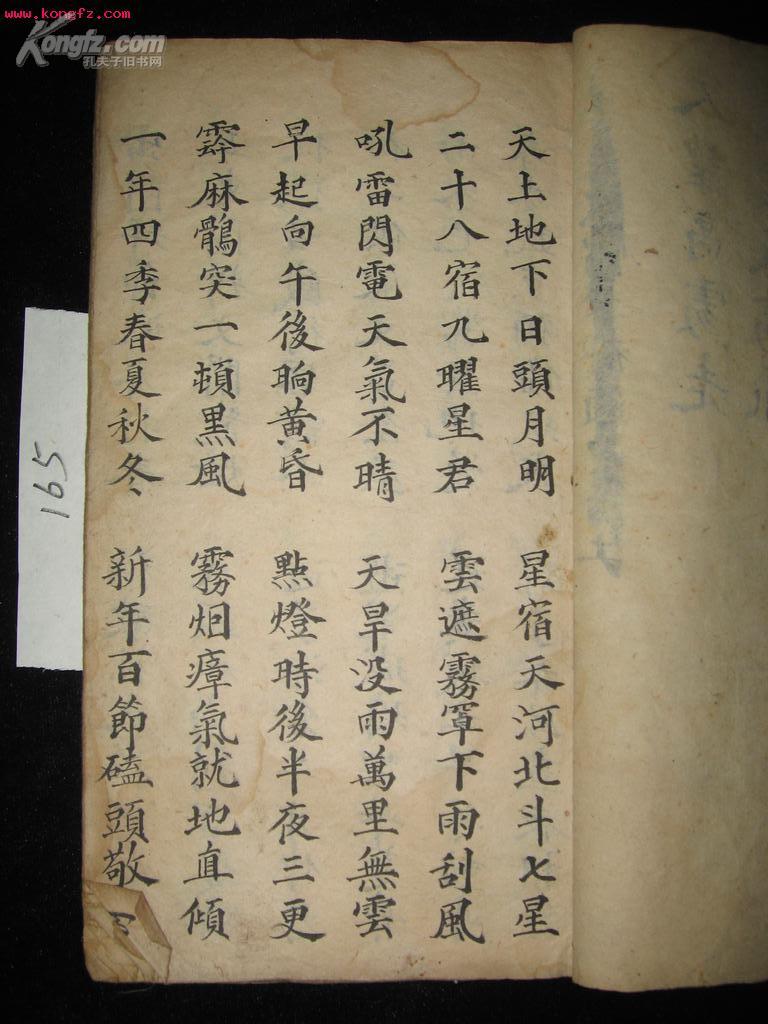 www.kongfz.com
Kongfz.com
孔夫子旧书网
天上地下日頭月明 星宿天河北斗七星
二十八宿九曜星君 雲遮霧罩下雨刮風
吼雷閃電天氣不晴 天旱没雨萬里無雲
早起向午後晌黄昏 點燈時後半夜三更
麻鶻突一頓黑風 霧烟瘴氣就地直傾
一年四季春夏秋冬 新年百節磕頭敬
165